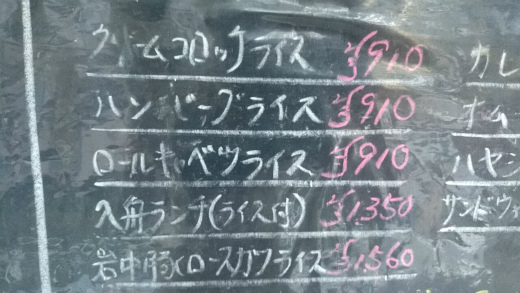 クリームコロッケライス ¥910
ハンバーグライス ¥910
ロールキャベツライス ¥910
入舟ランチ(ライス付) ¥1,350
岩中豚ロースカツライス ¥1,560
カレ
オム
ハヤシ
サンドウィ